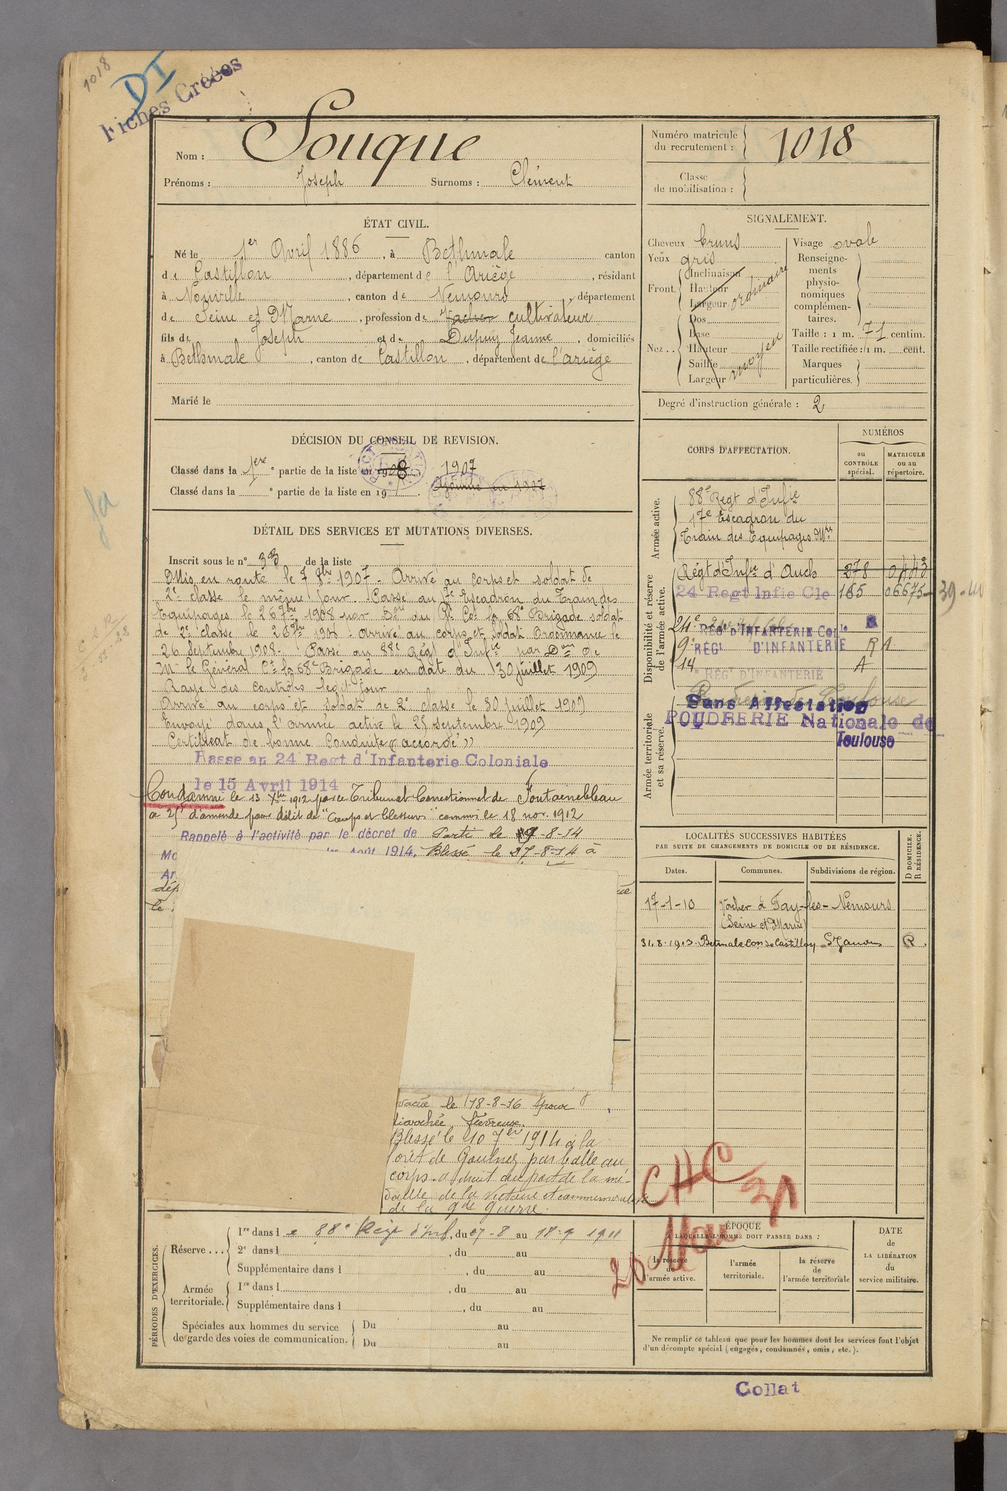 1018
DI
Fiches Créées
Nom : Souque
Prénoms : Joseph Surnoms : Clément
Numéro matricule du recrutement : 1018
Classe de mobilisation :
ÉTAT CIVIL.
Né le 1er Avril 1886, à Bethmale canton
de Castillon, département de l'Ariège, résidant
à Nonville, canton de Nemours, département
de Seine et Marne, profession de Vacher cultivateur
fils de Joseph et de Dupuy Jeanne, domiciliés
à Bethmale, canton de Castillon, département de l'Ariège
Marié le
SIGNALEMENT.
Cheveux bruns
Yeux gris
Front. Inclinaison
Hauteur
Largeur
ordinaire
Nez.. Dos
Base
Hauteur
Saillie
Largeur
moyen
Visage ovale
Renseigne-
ments
physio-
nomiques
complémen-
taires.
Taille : 1 m. 71 centim.
Taille rectifiée : 1 m. cent.
Marques
particulières.
Degré d'instruction générale : 2
DÉCISION DU CONSEIL DE REVISION.
Classé dans la 1ere partie de la liste en 1908 1907
Classé dans la e partie de la liste en 19 Ajourné en 1907
DÉTAIL DES SERVICES ET MUTATIONS DIVERSES.
Inscrit sous le n° 38 de la liste
Mis en route le 7 8bre 1907. Arrivé au corps et soldat de
2e classe le même jour. Passé au 17e Escadron du Train des
Equipages le 26 7bre 1908 par Don du Gl Ct la 68e Brigade soldat
de 2e classe le 26 7bre 1908. arrivé au corps et soldat ordonnance le
26 Septembre 1908. Passé au 88e Régt d'Infie par Don de
Mr le Général Ct la 68e Brigade en date du 30 juillet 1909
Rayé des contrôles ledit jour
Arrivé au corps et soldat de 2e classe le 30 juillet 1909
Envoyé dans l'armée active le 25 septembre 1909
Certificat de bonne conduite "accordé"
Passe au 24 Regt d'Infanterie Coloniale
le 15 Avril 1914
Condamné le 13 Xbre 1912 par le Tribunal Correctionnel de Fontainebleau
à 25f d'amende pour délit de "Coups et blessures" commis le 18 nov. 1912
Rappelé à l'activité par le décret de Parti le 9-8-14
Août 1914. Blessé le 27-8-14 à
Mo
Ar
dép
le
le 18-8-16 pour
fièvreuse.
Blessé le 10 7bre 1914 à la
forêt de Gaulnes par balle au
corps. a droit au port de la mé-
daille de la victoire et commémorative
de la gde guerre.
CORPS D'AFFECTATION.
NUMÉROS
au CONTRÔLE spécial.
MATRICULE ou au répertoire.
Armée active.
88e Régt d'Infie
17e Escadron du
Train des Equipages Mres
Disponibilité et réserve de l'armée active.
Régt d'Infie d'Auch 278
24 Regt Infie Cle 185 06675 39-40
24e REGt D'INFANTERIE COLle R
9e REGt D'INFANTERIE RA
14 REGt D'INFANTERIE A
Armée territoriale et sa réserve.
Poudrerie de Toulouse
Sans Affectation
POUDRERIE Nationale de
Toulouse
LOCALITÉS SUCCESSIVES HABITÉES
PAR SUITE DE CHANGEMENTS DE DOMICILE OU DE RÉSIDENCE.
Dates. Communes. Subdivisions de région. D DOMICILE. R RÉSIDENCE.
17-1-10 Vacher à Fay-les-Nemours
(Seine et Marne)
31.8.1913 Betmale Con de Castillon St Gaudens R.
CHC
PÉRIODES D'EXERCICES.
Réserve... 1re dans le 88e Régt d'Inf., du 27-8 au 18-9 1911
2e dans l , du au
Supplémentaire dans l , du au
Armée territoriale. 1re dans l , du au
Supplémentaire dans l , du au
Spéciales aux hommes du service de garde des voies de communication. Du au
Du au
ÉPOQUE
À LAQUELLE L'HOMME DOIT PASSER DANS :
la réserve de l'armée active.
l'armée territoriale.
la réserve de l'armée territoriale
DATE de LA LIBÉRATION du service militaire.
Ne remplir ce tableau que pour les hommes dont les services font l'objet
d'un décompte spécial (engagés, condamnés, omis, etc.).
Collat